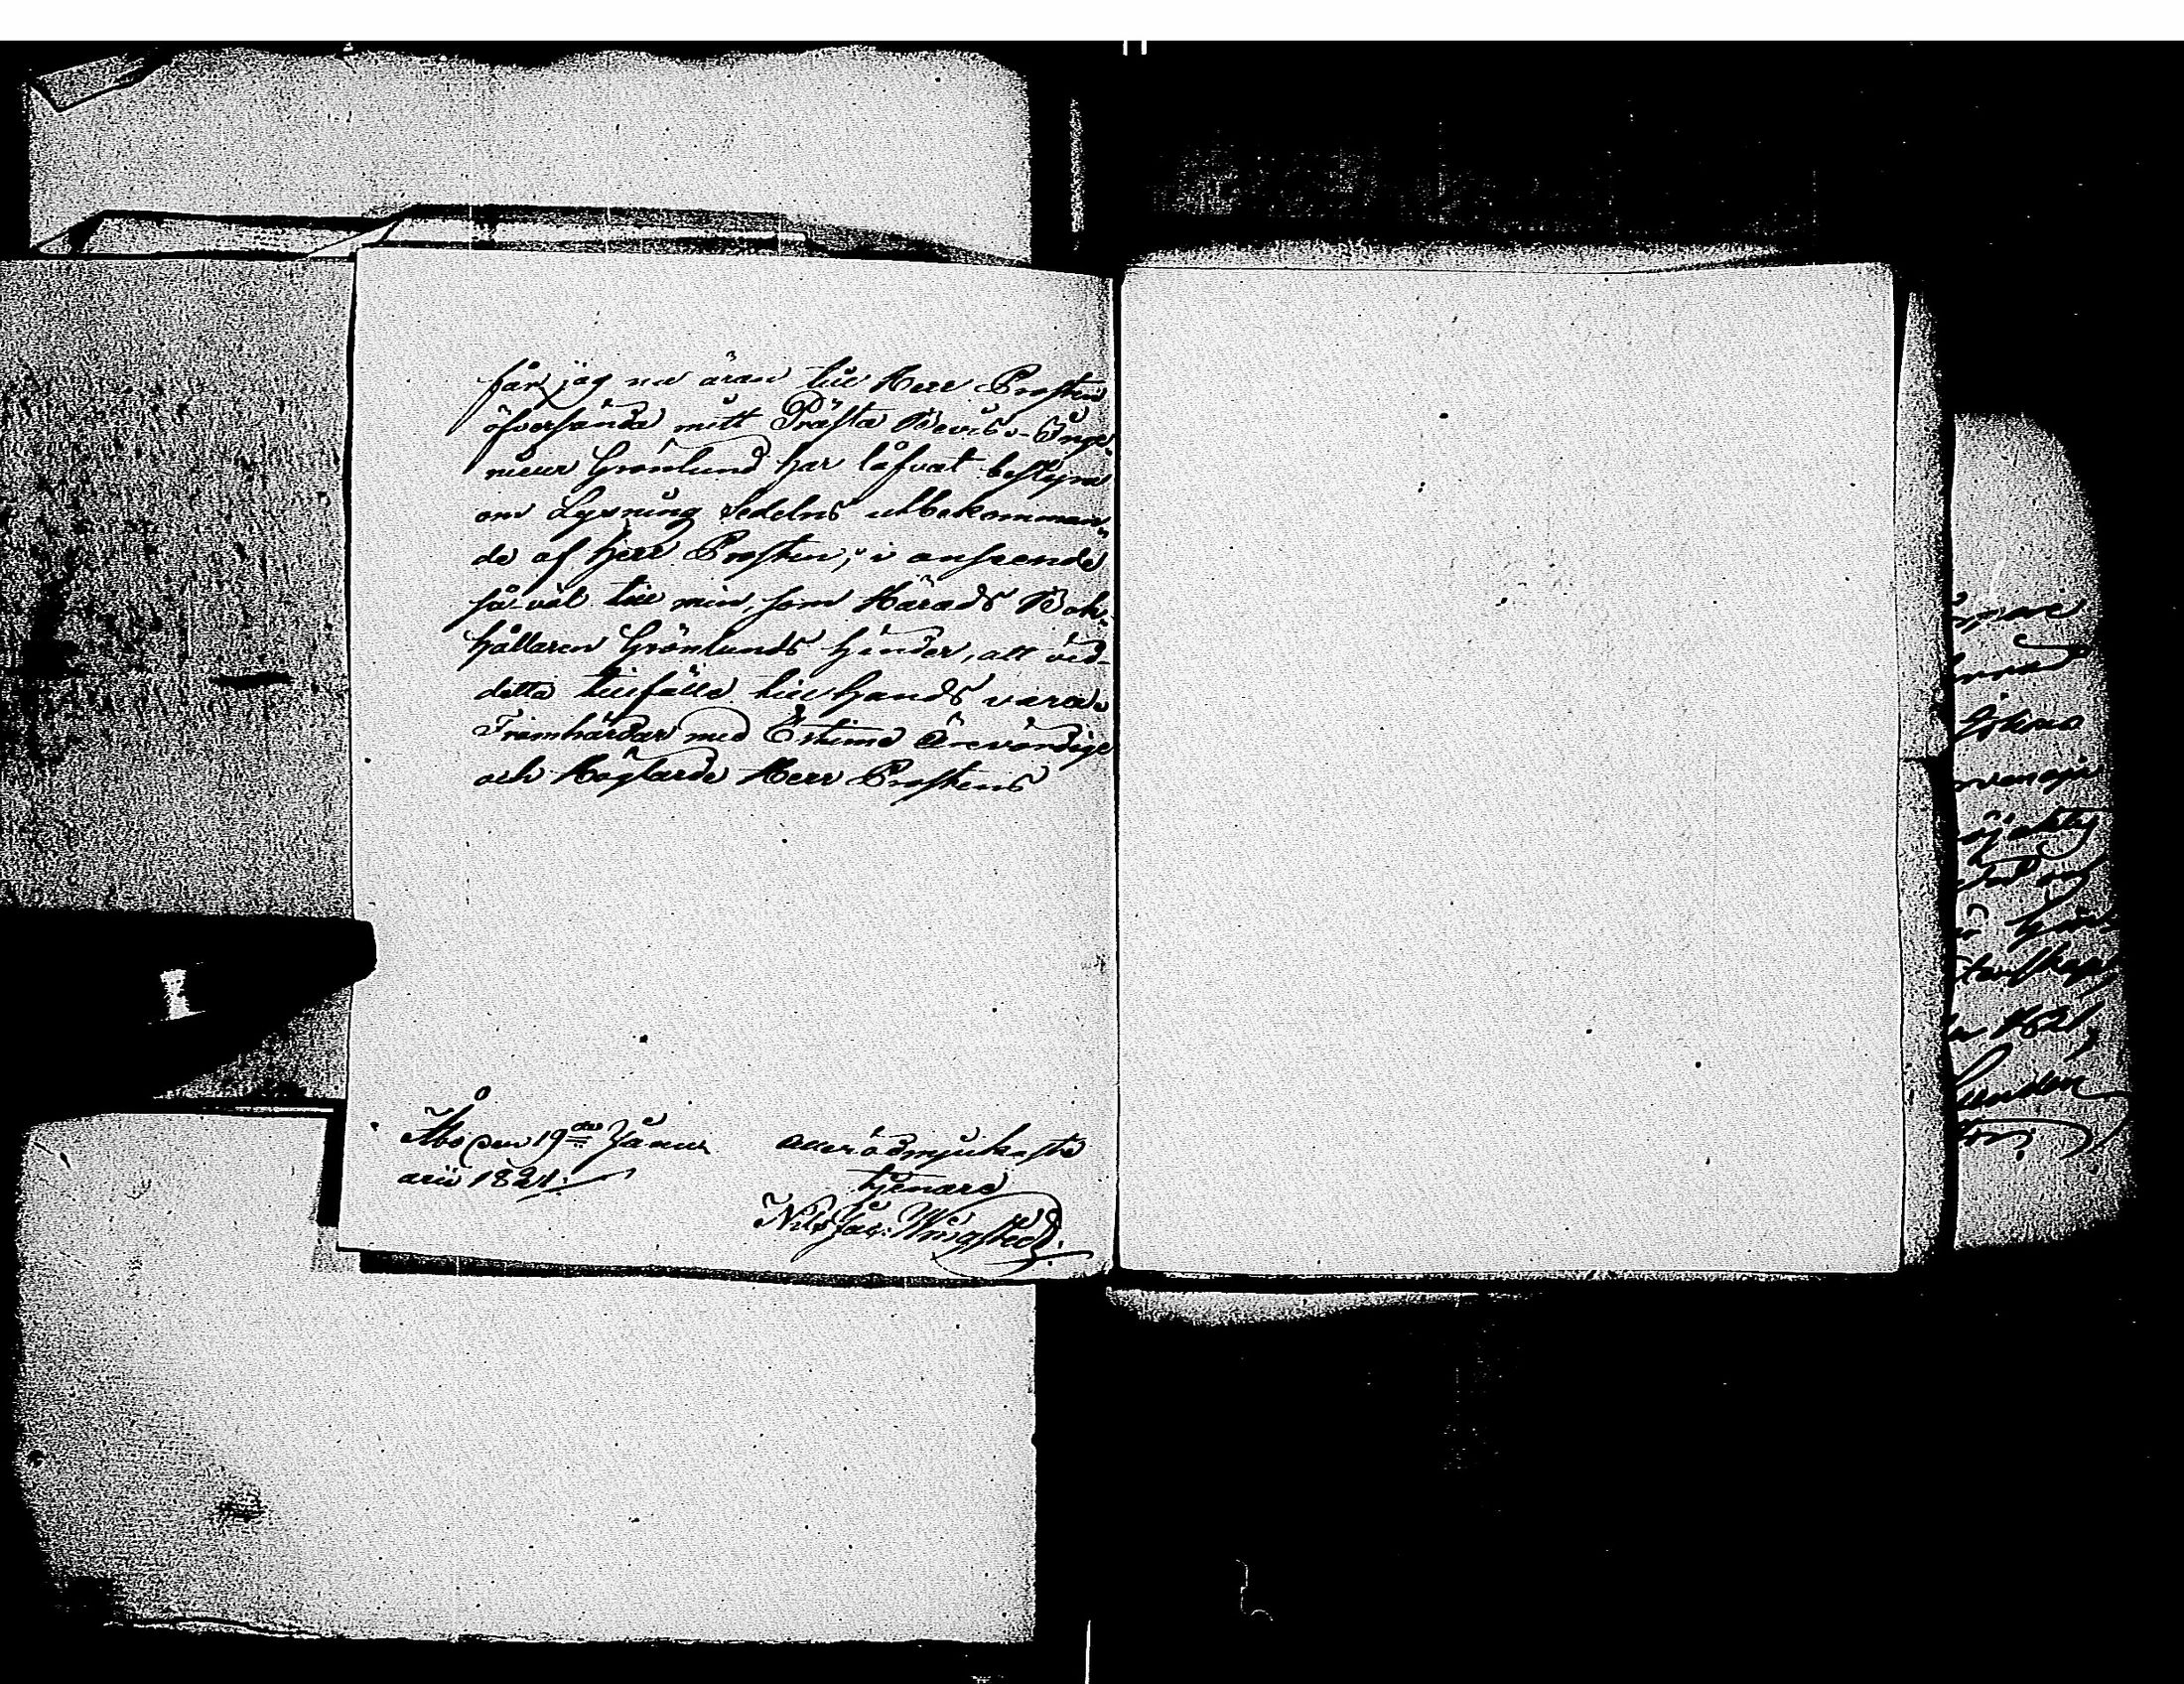 får jag nu äran till Herr Prosten
öfversända mitt Prästa Bevis. Inge-
nieur Grönlund har låfvat bestyra
om Lysning Sedelns utbekomman-
de af Herr Prosten, i anseende
så väl till min, som Härads Bok-
hållaren Grönlunds hinder, att vid
detta tillfälle till hands vara.
Framhärdar med Estime Ärevördige
och Höglärde Herr Prostens
Åbo den 19de Janu-
arii 1821.
allerödmjukaste
tjenare
Nils Jac: Wingsted.